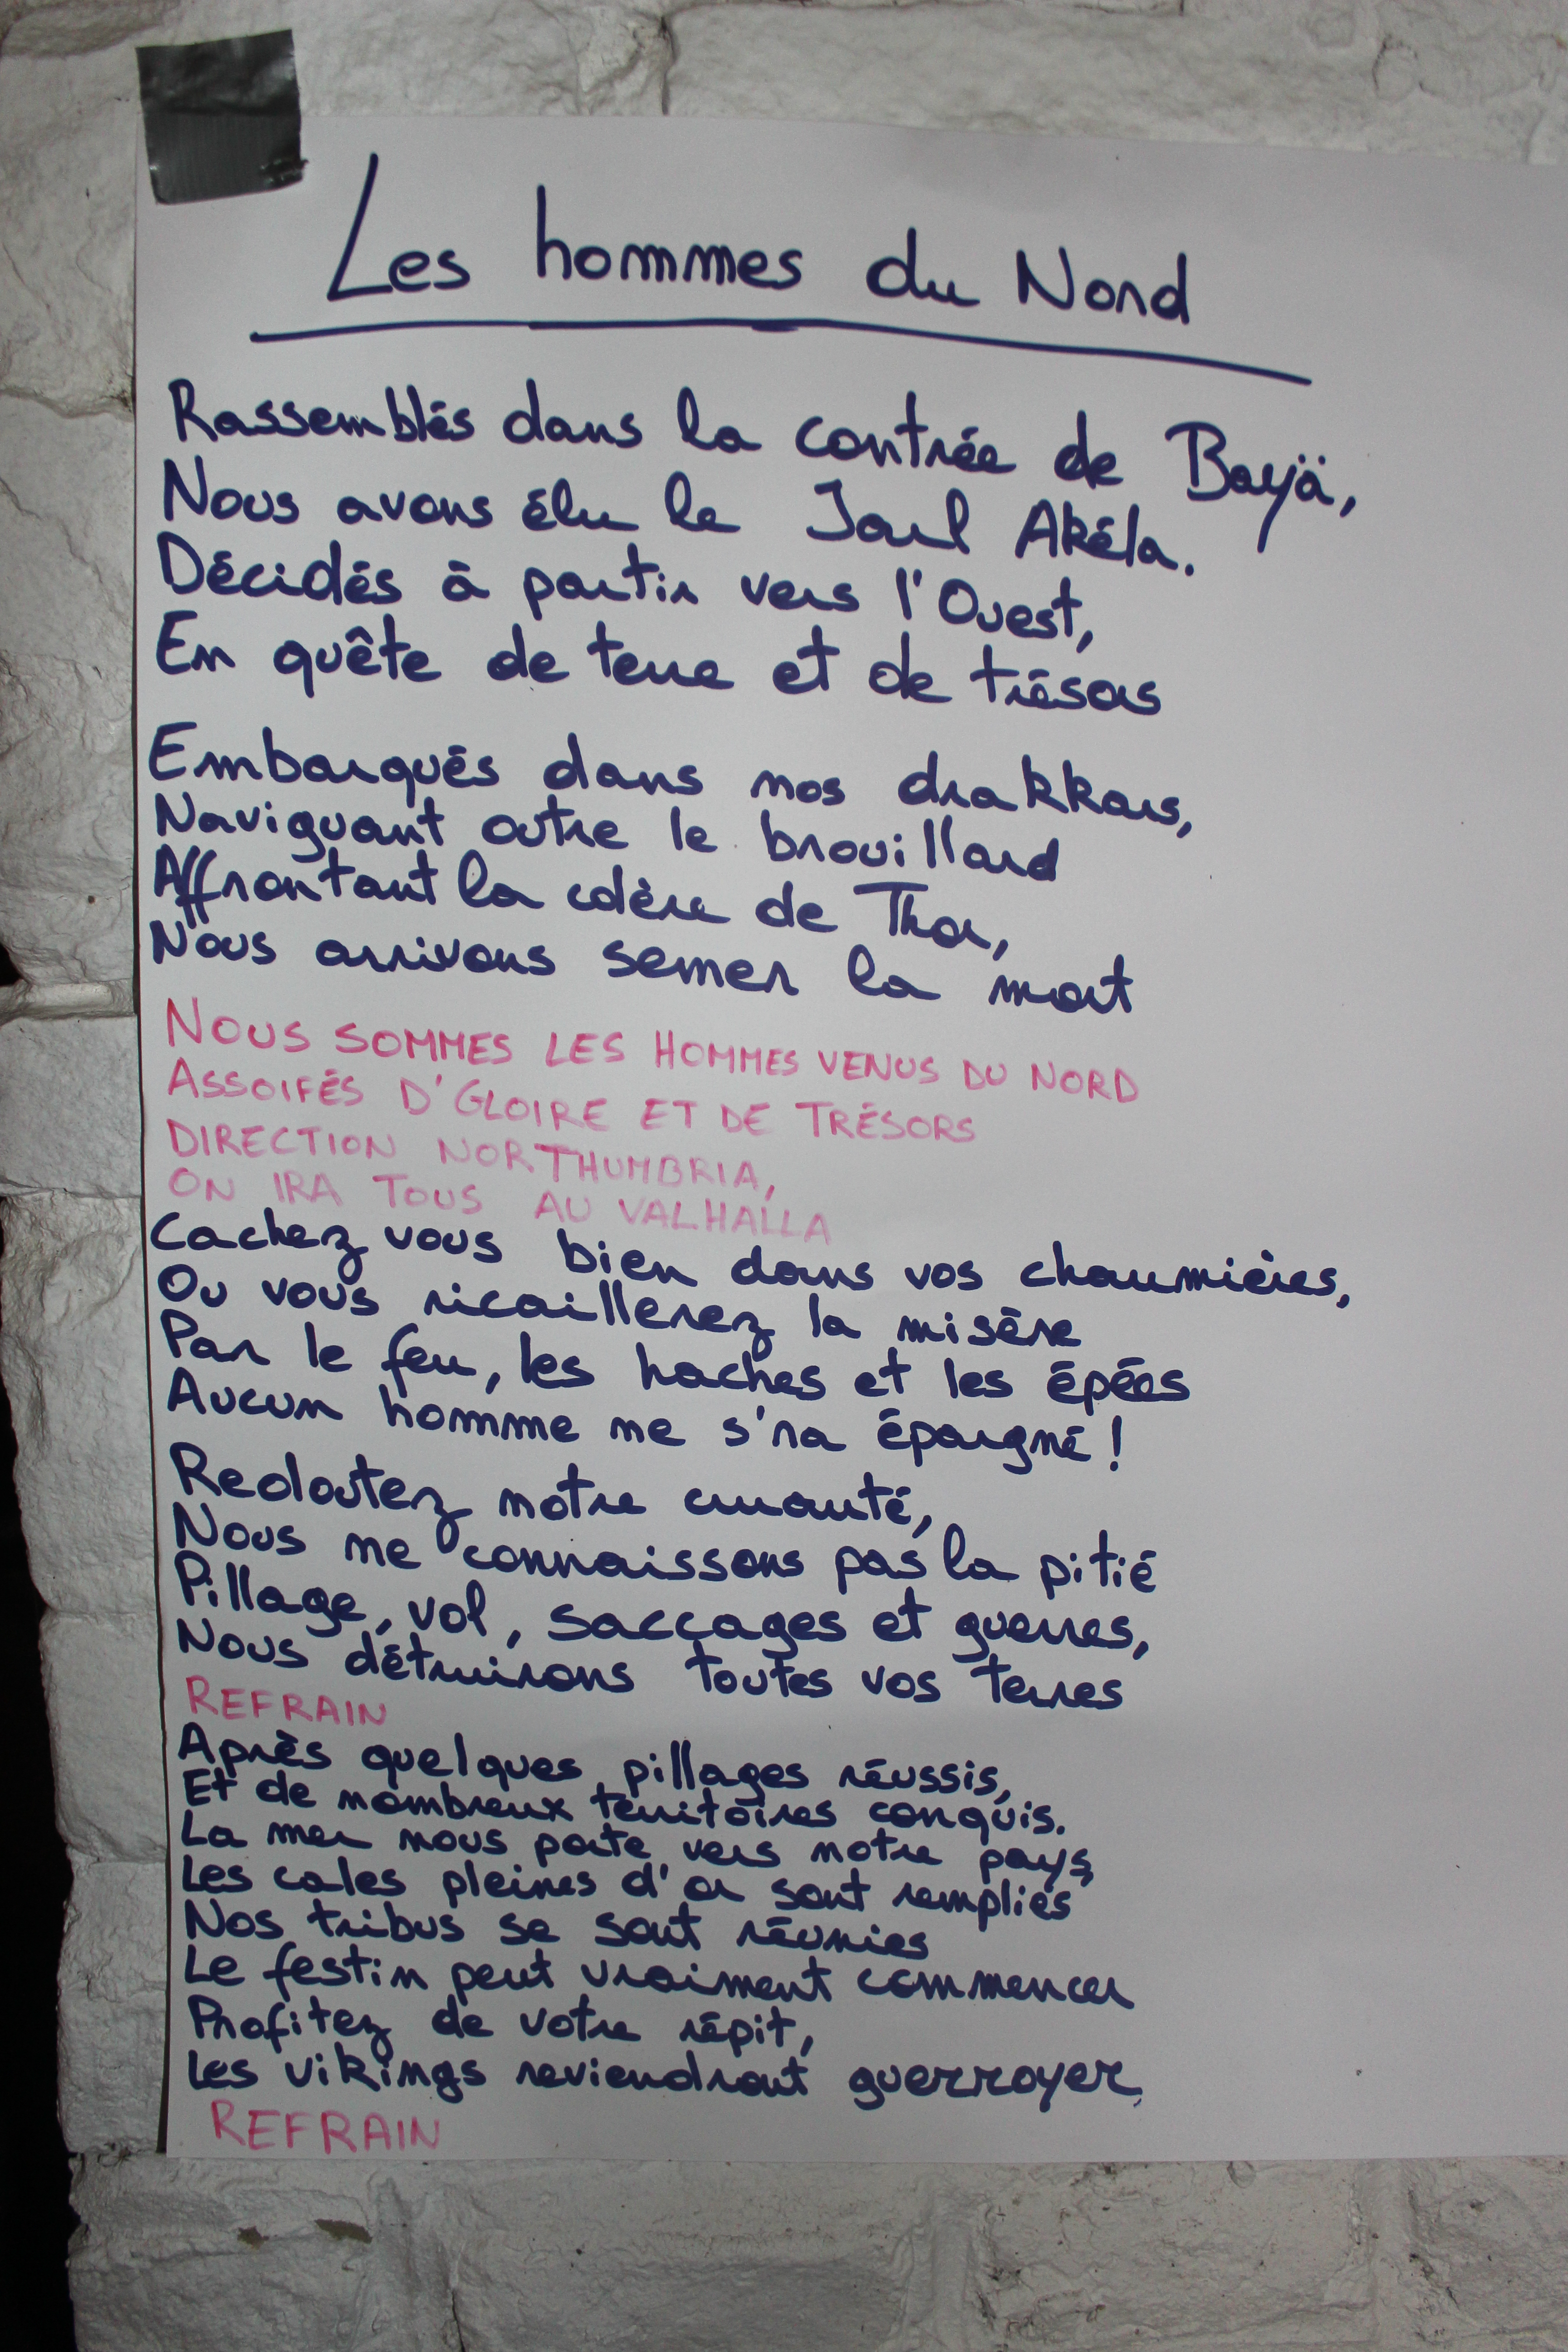 Les hommes du Nord
Rassemblés dans la contrée de Bayä,
Nous avons élu le Jarl Akéla.
Décidés à partir vers l'Ouest,
En quête de terre et de trésors
Embarqués dans nos drakkars,
Naviguant outre le brouillard
Affrontant la colère de Thor,
Nous arrivons semer la mort
NOUS SOMMES LES HOMMES VENUS DU NORD
ASSOIFÉS D'GLOIRE ET DE TRÉSORS
DIRECTION NORTHUMBRIA,
ON IRA TOUS AU VALHALLA
Cachez vous bien dans vos chaumières,
Ou vous ricaillerez la misère
Par le feu, les haches et les épées
Aucun homme ne s'ra épargné !
Redoutez notre cruauté,
Nous ne connaissons pas la pitié
Pillage, vol, saccages et guerres,
Nous détruirons toutes vos terres
REFRAIN
Après quelques pillages réussis,
Et de nombreux territoires conquis.
La mer nous porte vers notre pays,
Les cales pleines d'or sont remplies
Nos tribus se sont réunies
Le festin peut vraiment commencer
Profitez de votre répit,
Les vikings reviendront guerroyer.
REFRAIN